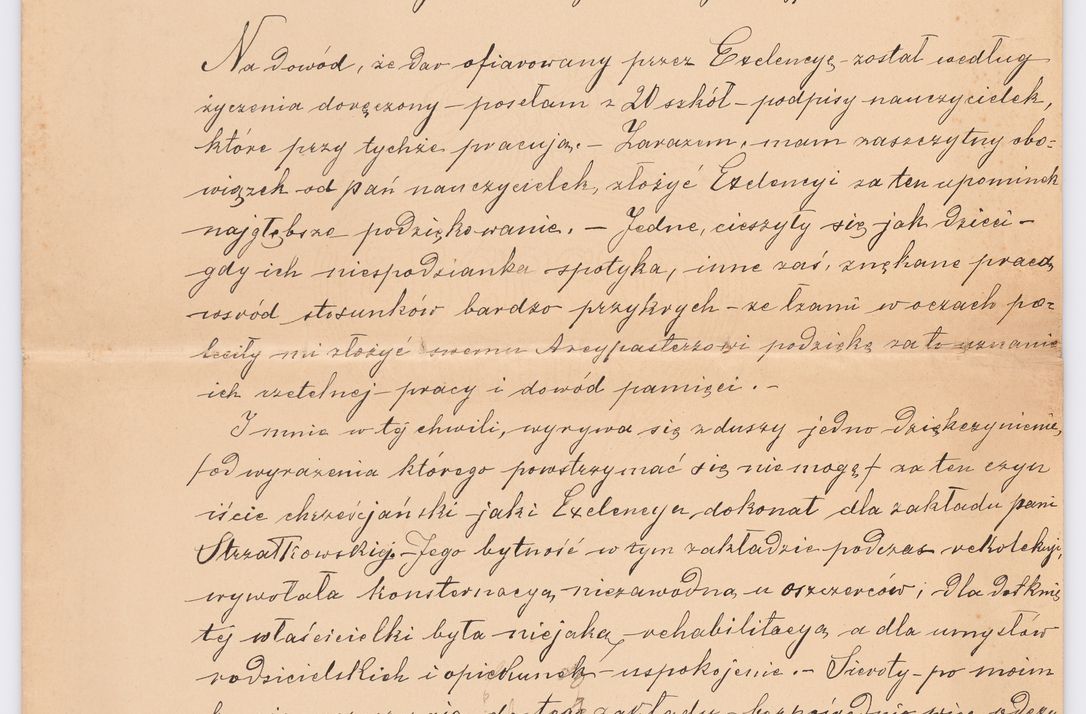 Na dowód, że dar ofiarowany przez Exelencyę – został według
życzenia doręczony – posełam z 20 szkół – podpisy nauczycielek,
które przy tychże pracują. – Zarazem, mam zaszczytny obo=
wiązek od pań nauczycielek, złożyć Exelencyi za ten upominek
najgłębsze podziękowanie. – Jedne, cieszyły się jak dzieci –
gdy ich niespodzianka spotyka, inne zaś, znękane pracą
wsród stosunków bardzo przykrych – ze łzami w oczach po=
leciły mi złożyć swemu Arcypasterzowi podziękę za to uznanie
ich rzetelnej – pracy i dowód pamięci. –
I mnie w tej chwili, wyrywa się z duszy jedno dziękczynienie,
/ od wyrażenia którego powstrzymać się nie mogę / za ten czyn
iście chrześcjański – jaki Exelencya dokonał dla zakładu pani
Strzałkowskiej. – Jego bytność w tym zakładzie podczas rekolekcyi,
wywołała konsternacyą niezawodną u oszczerców; dla dotknię
tej właścicielki była niejaką rehabilitacyą a dla umysłów
rodzicielskich i opiekunek – uspokojenie. – Sieroty – po moim